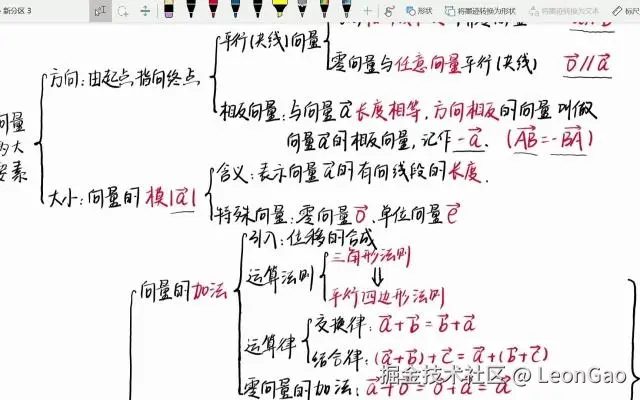 新分区 3
形状
将墨迹转换为形状
将墨迹转换为文本
标尺
平行(共线)向量
零向量与任意向量平行(共线) 0⃗//a⃗
方向:由起点指向终点
相反向量:与向量a⃗长度相等,方向相反的向量叫做
向量a⃗的相反向量,记作-a⃗. (AB⃗=-BA⃗)
向量
大
要素
大小:向量的模|a⃗|
含义:表示向量a⃗的有向线段的长度.
特殊向量:零向量0⃗.单位向量e⃗
引入:位移的合成
向量的加法
运算法则
三角形法则
⇓
平行四边形法则
运算律
交换律:a⃗+b⃗=b⃗+a⃗
结合律:(a⃗+b⃗)+c⃗=a⃗+(b⃗+c⃗)
零向量的加法:a⃗+0⃗=0⃗+a⃗=a⃗
掘金技术社区 @ LeonGao